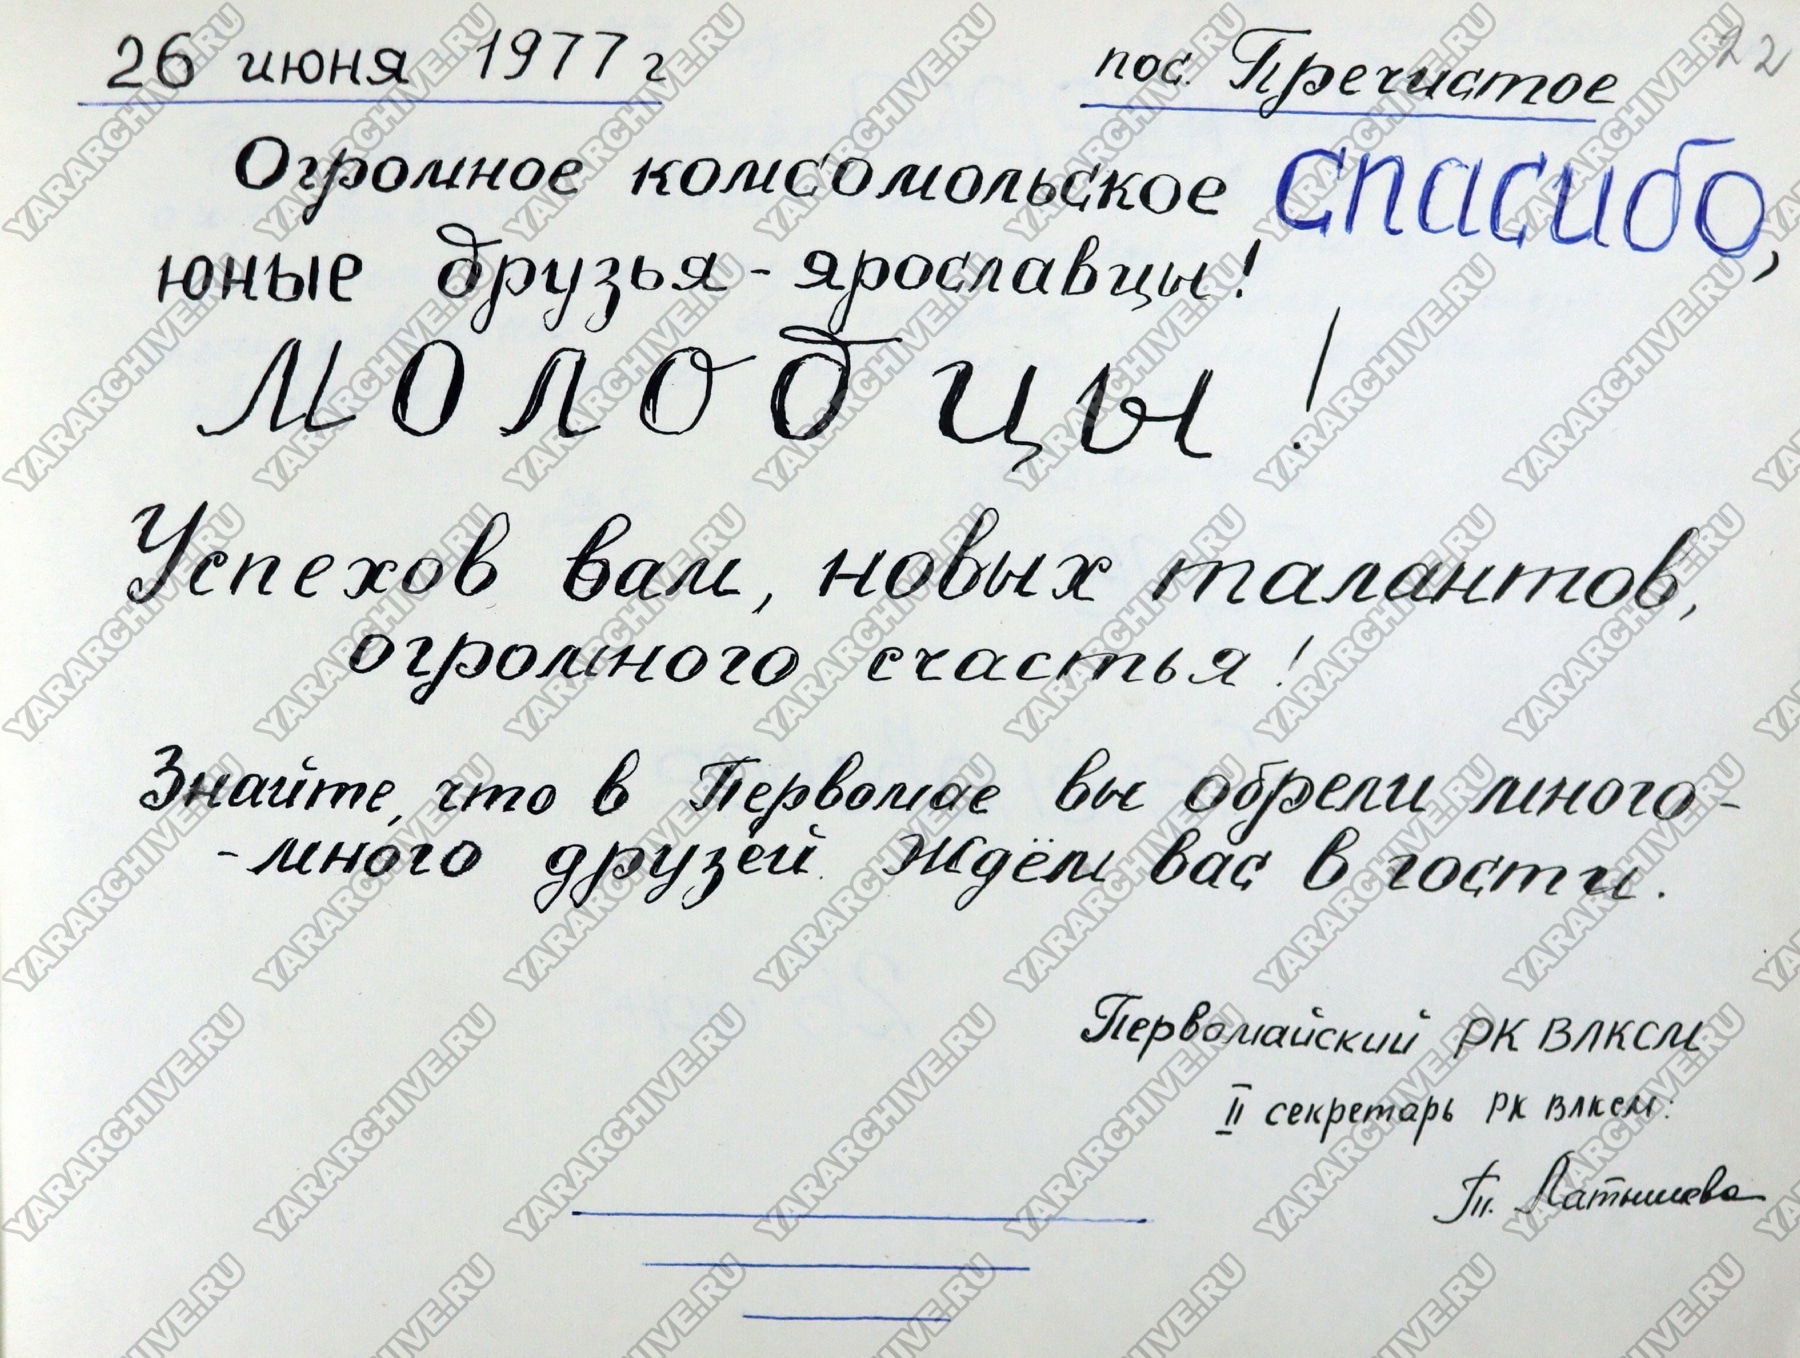 26 июня 1977 г пос. Пречистое 22
Огромное комсомольское спасибо,
юные друзья - ярославцы!
Молодцы!
Успехов вам, новых талантов,
огромного счастья!
Знайте, что в Первомае вы обрели много-
-много друзей. Ждём вас в гости.
Первомайский РК ВЛКСМ
II секретарь РК ВЛКСМ:
Т. Латышева
YARARCHIVE.RU